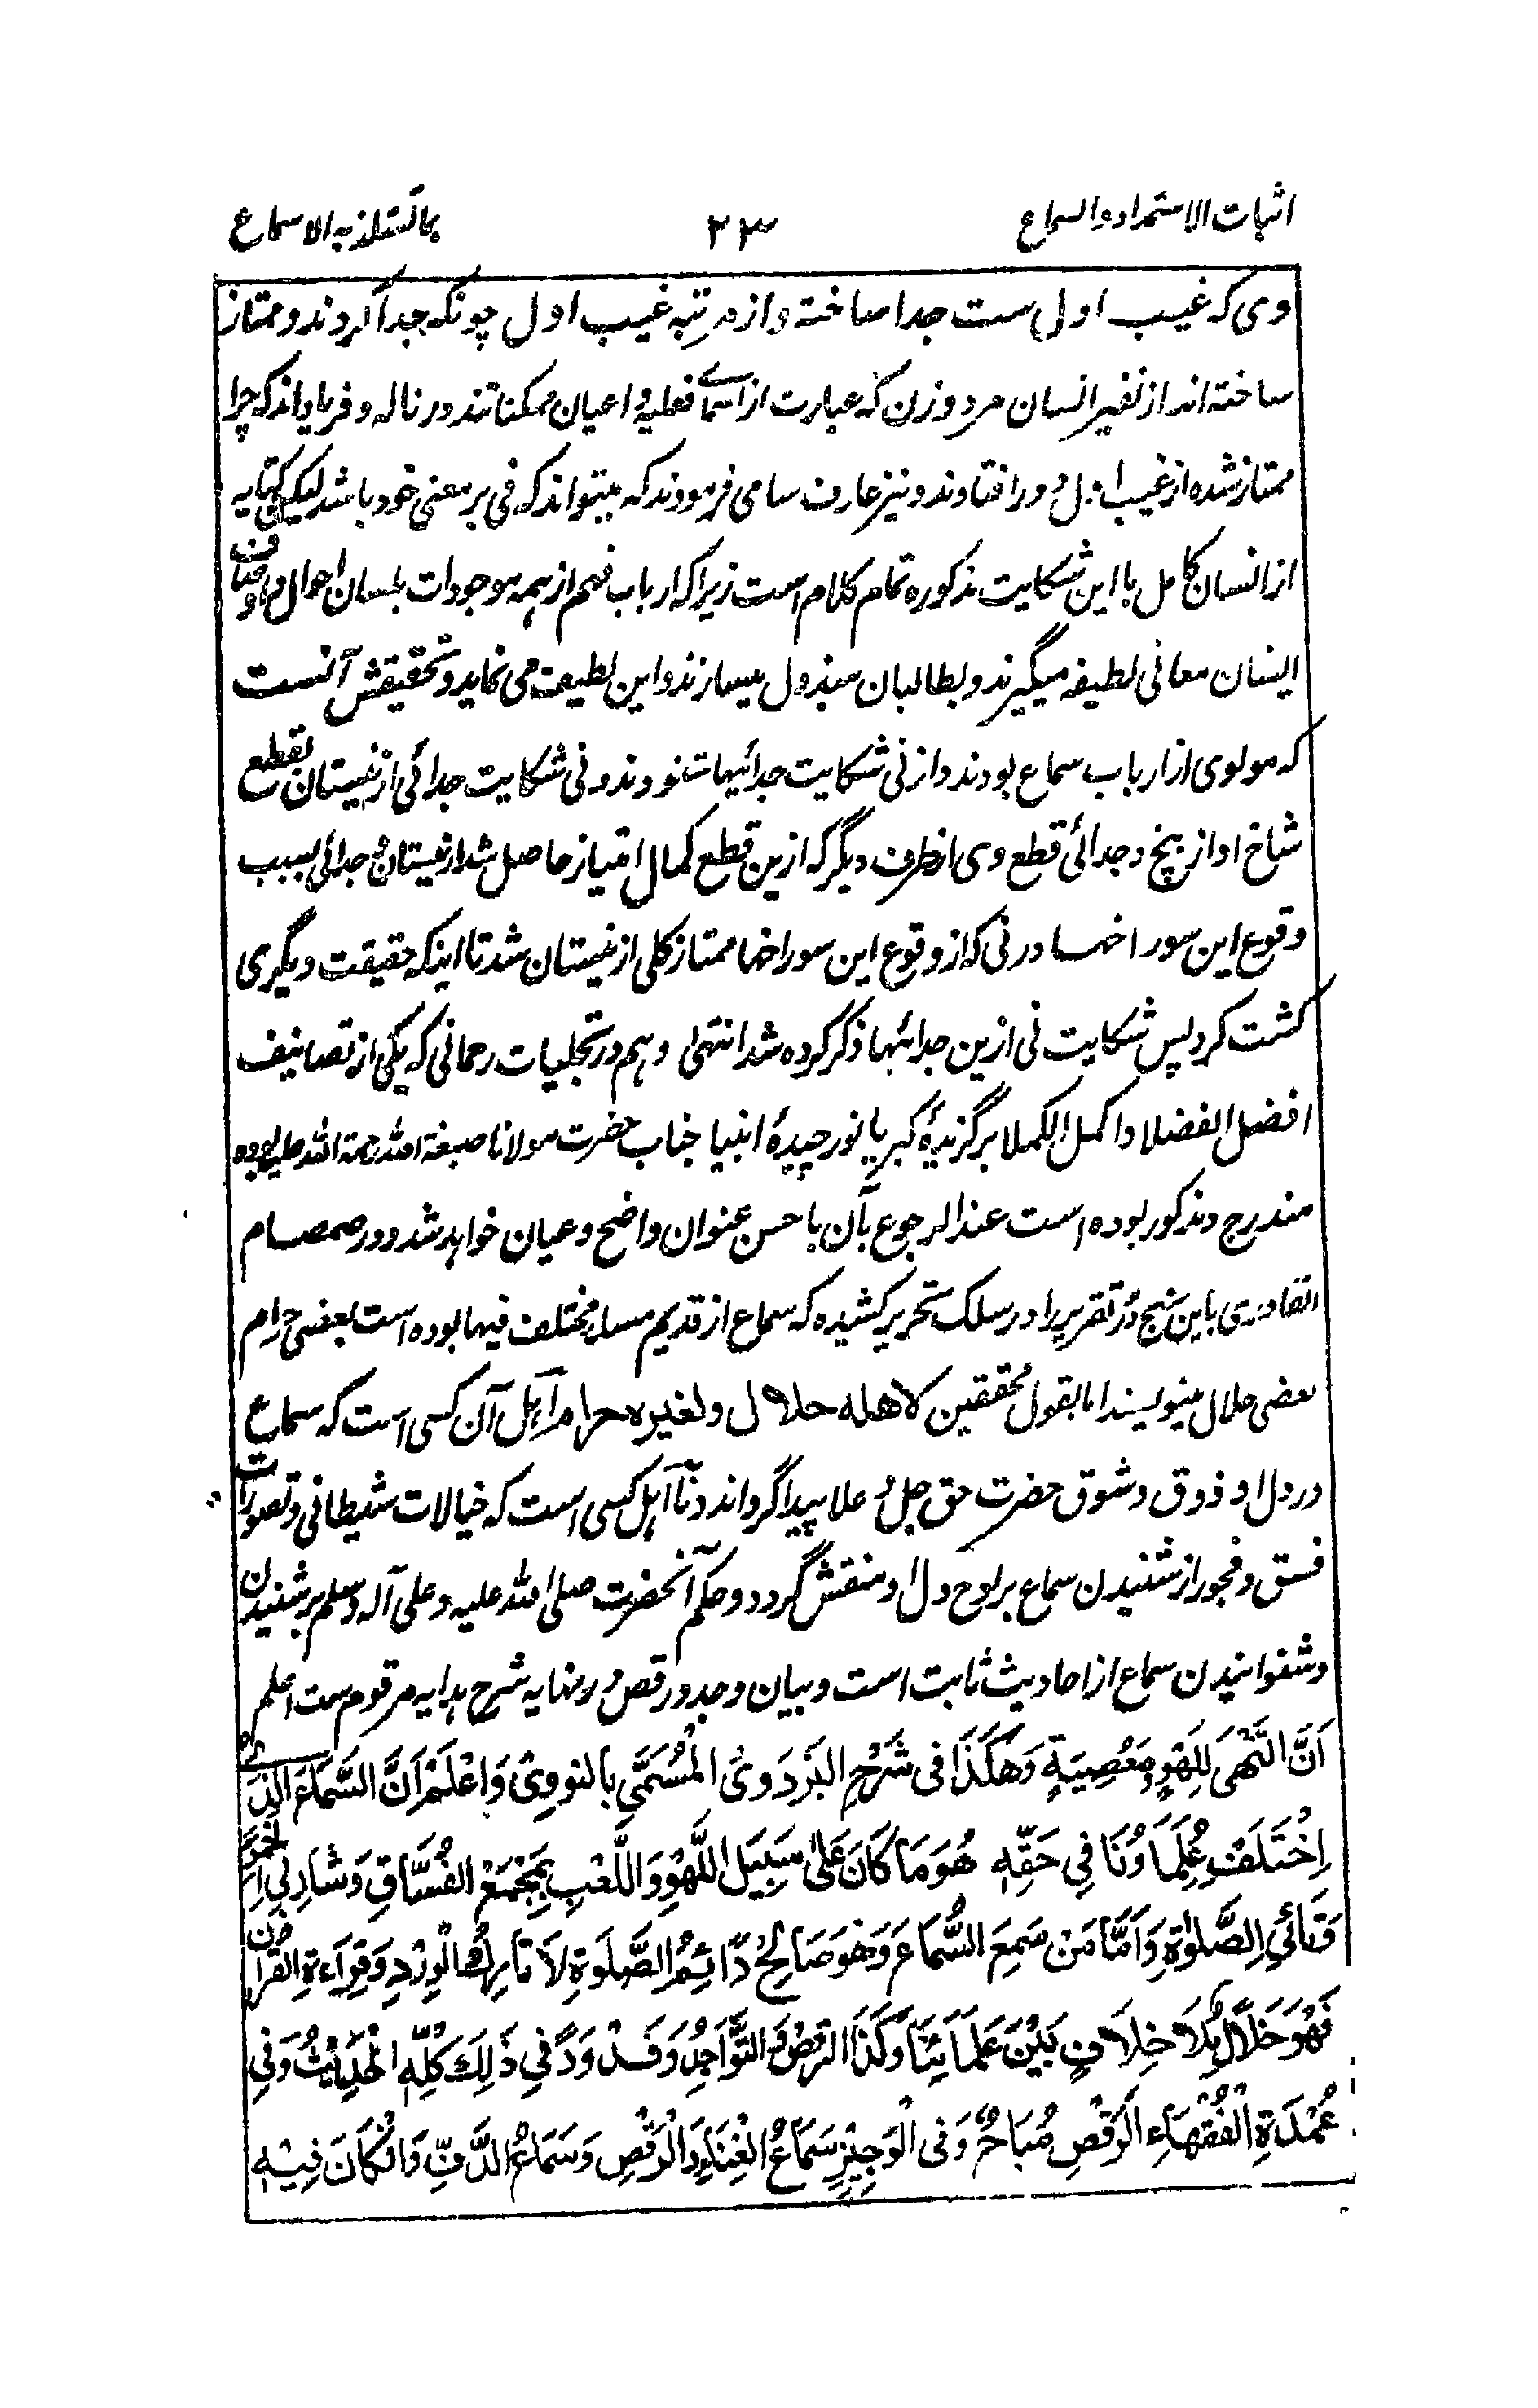 اثبات الاستمداد والسماع
۲۳
بما تستلذ به الاسماع
وی که غیب اول ست جدا ساخته و از مرتبه غیب اول چونکه جدا کردند و ممتاز
ساخته اند از نفیر انسان مرد و زن که عبارت از اسمائے فعلیه و اعیان ممکنا تند در ناله و فریاد اند که چرا
ممتاز شده از غیب اول دور افتادند و نیز عارف سامی فرمودند که میتواند که نی بر معنی خود باشد لیکن کنایه
از انسان کامل با این شکایت مذکوره تمام کلام است زیرا که ارباب فهم از همه موجودات بلسان احوال و اوصاف
ایشان معانی لطیفه میگیرند و بطالبان مبذول میسازند و این لطیفه می نماید و تحقیقش آنست
که مولوی از ارباب سماع بودند و از نی شکایت جدائیها شنودند و نی شکایت جدائی از نیستان بقطع
شاخ او از بیخ و جدائی قطع وی از طرف دیگر که ازین قطع کمال امتیاز حاصل شد از نیستان و جدائی بسبب
وقوع این سوراخها در نی که از وقوع این سوراخها ممتاز کلی از نیستان شد تا اینکه حقیقت دیگری
گشت کرد پس شکایت نی ازین جدائیها ذکر کرده شد انتهی و هم در تجلیات رحمانی که یکی از تصانیف
افضل الفضلا و اکمل الکملا برگزیدۀ کبریا نور چیدۀ انبیا جناب حضرت مولانا صبغة الله رحمة الله علیه بوده
مندرج و مذکور بوده است عند الرجوع بآن با حسن عنوان واضح و عیان خواهد شد و در صمصام
القادری باین نهج دُر تقریر را در سلک تحریر کشیده که سماع از قدیم مسله مختلف فیها بوده است بعضی حرام
بعضی حلال مینویسند اما بقول محققین لاهله حلال ولغیره حرام اهل آن کسی است که سماع
در دل او ذوق و شوق حضرت حق جل و علا پیدا گرداند و نا اهل کسی است که خیالات شیطانی و تصورات
فسق و فجور از شنیدن سماع بر لوح دل او منقش گردد و حکم آنحضرت صلی الله علیه و علی آله وسلم بر شنیدن
و شنوانیدن سماع از احادیث ثابت است و بیان وجد و رقص در نهایه شرح هدایه مرقوم ست اعلم
اَنَّ النَّهْیَ لِلَهْوٍ وَ مَعْصِیَةٍ وَهٰكَذَا فی شَرْحِ البَزْدَوِیْ المُسَمَّی بالنووِیْ وَاعْلَمْ اَنَّ السَّمَاعَ الَّذِیْ
اِخْتَلَفَتْ عُلَمَاؤُنَا فِی حَقِّهٖ هُوَ مَا كَانَ عَلٰی سَبِیْلِ اللَّهْوِ وَاللَّعْبِ بِمَجْمَعِ الفُسَّاقِ وَشَارِبِی الخَمْرِ
وَتَارِكِی الصَّلوٰةِ وَاَمَّا مَنْ سَمِعَ السَّمَاعَ وَهُوَ صَالِحٌ دَائِمُ الصَّلوٰةِ لَا تَارِكُ الْوِرْدِ وَقِرَاءَةِ القُرْاٰنِ
فَهُوَ حَلَالٌ بِلَا خِلَافٍ بَیْنَ عُلَمَائِنَا وَكَذَا الرَّقْصُ وَالتَّوَاجُدُ وَقَدْ وَرَدَ فِی ذٰلِكَ كُلِّهٖ الْحَدِیْثُ وَفِی
عُمْدَةِ الْفُقَهَاءِ الرَّقْصُ مُبَاحٌ وَفِی الْوَجِیْزِ سَمَاعُ الْغِنَاءِ وَالرَّقْصِ وَسَمَاعُ الدَّفِّ وَاِنْ كَانَ فِیْهِ